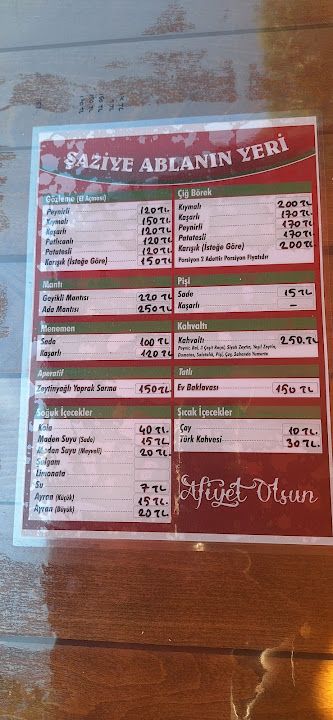 ŞAZİYE ABLANIN YERİ
Gözleme (El Açması)
Peynirli 120 TL
Kıymalı 150 TL
Kaşarlı 120 TL
Patlıcanlı 120 TL
Patatesli 120 TL
Karışık (İsteğe Göre) 150 TL
Çiğ Börek
Kıymalı 200 TL
Kaşarlı 170 TL
Peynirli 170 TL
Patatesli 170 TL
Karışık (İsteğe Göre) 200 TL
Porsiyon 2 Adettir Porsiyon Fiyatıdır
Mantı
Gayikli Mantısı 220 TL
Ada Mantısı 250 TL
Pişi
Sade 15 TL
Kaşarlı –
Menemen
Sade 100 TL
Kaşarlı 120 TL
Kahvaltı
Kahvaltı 250 TL
Peynir, Bal, Reçel, Siyah Zeytin, Yeşil Zeytin,
Domates, Salatalık, Pişi, Çay, Sahanda Yumurta
Aperatif
Zeytinyağlı Yaprak Sarma 150 TL
Tatlı
Ev Baklavası 150 TL
Soğuk İçecekler
Kola 40 TL
Maden Suyu (Sade) 15 TL
Maden Suyu (Meyveli) 20 TL
Şalgam
Limonata
Su 7 TL
Ayran (Küçük) 15 TL
Ayran (Büyük) 20 TL
Sıcak İçecekler
Çay 10 TL
Türk Kahvesi 30 TL
Afiyet Olsun